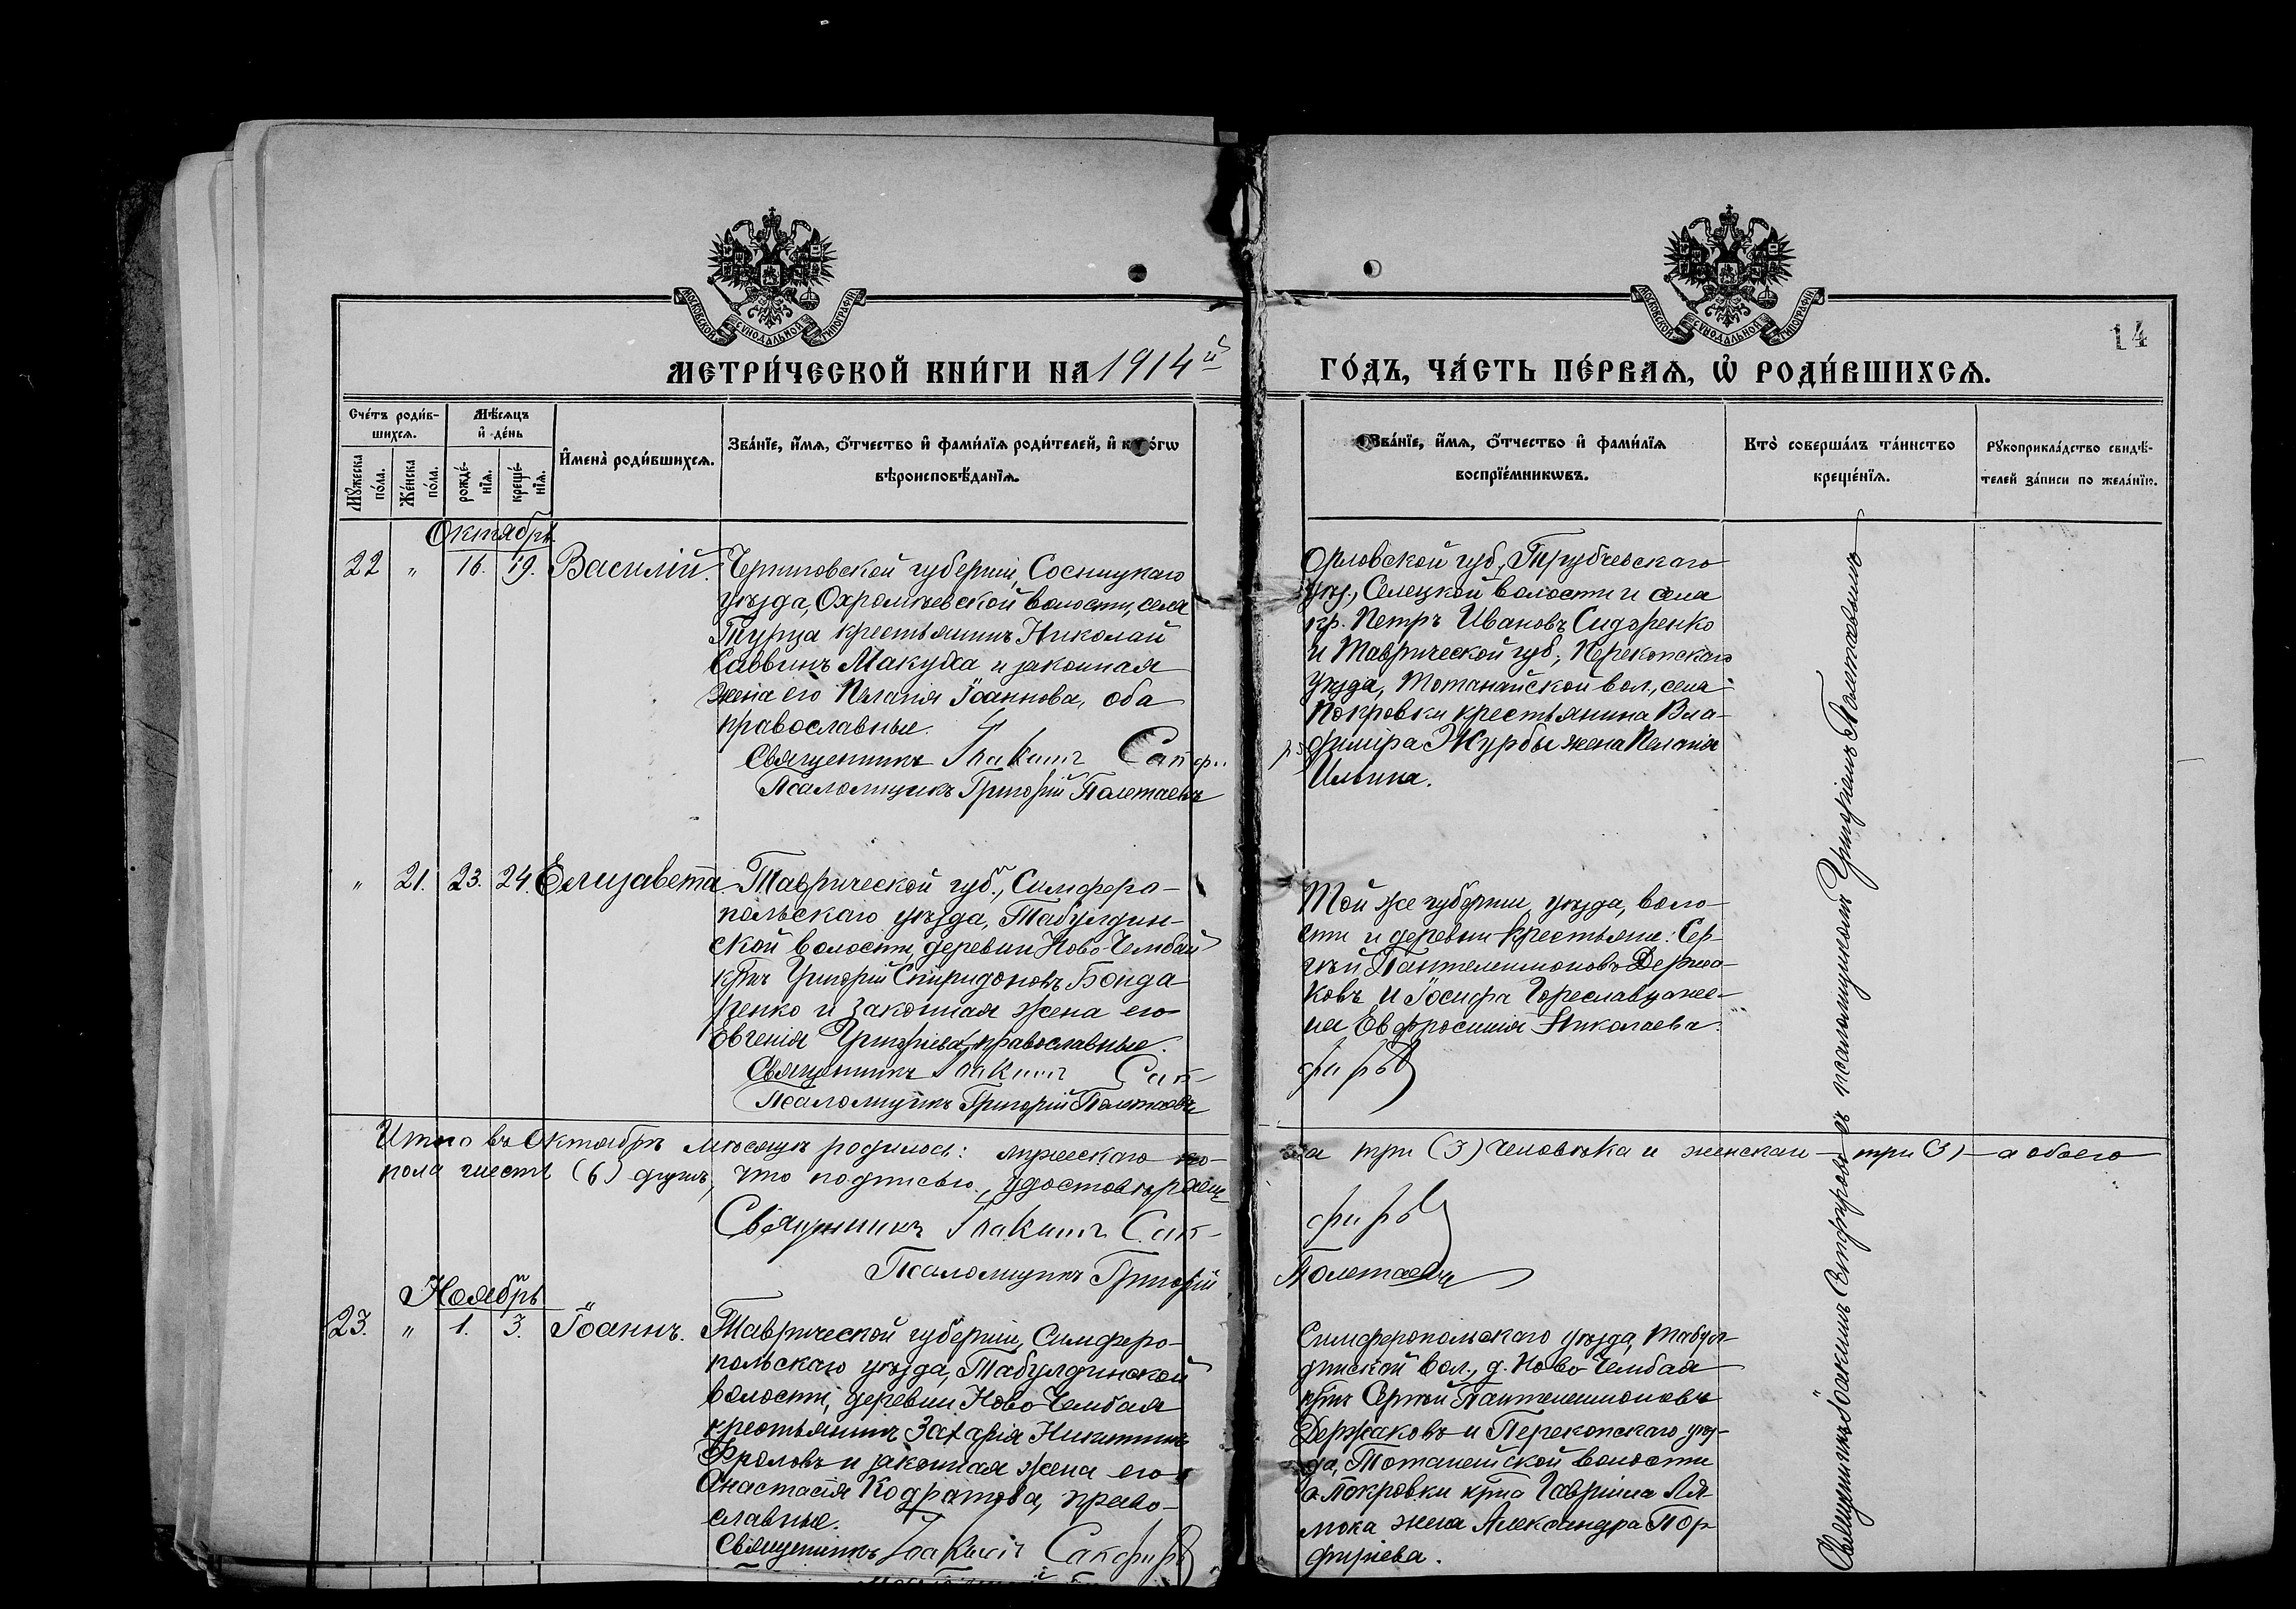 МОСКОВСКОЙ СѴНОДАЛЬНОЙ ТИПОГРАФІИ
МОСКОВСКОЙ СѴНОДАЛЬНОЙ ТИПОГРАФІИ
14
МЕТРИ́ЧЕСКОЙ КНИ́ГИ НА 1914й
ГО́ДЪ, ЧА́СТЬ ПЕ́РВАЯ, Ѡ҆ РОДИ́ВШИХСЯ.
Сче́тъ роди́в-
шихся.
Мѣ́сяцъ
и҆ де́нь
Мꙋ́жеска
по́ла.
Же́нска
по́ла.
рожде́-
нїя.
креще́-
нїя.
И҆мена̀ роди́вшихся.
Зва́нїе, и҆́мя, ѻ҆́тчество и҆ фами́лїя роди́телей, и҆ ко́гѡ
вѣроисповѣ́данїя.
Зва́нїе, и҆́мя, ѻ҆́тчество и҆ фами́лїя
воспрїе́мникѡвъ.
Кто̀ соверша́лъ та́инство
креще́нїя.
Рꙋкоприкла́дство свидѣ́-
телей за́писи по жела́нїю.
Октябрь
22 " 16. 19. Василій.
Черниговской губерніи, Сосницкаго
уѣзда, Охромѣевской волости, села
Турца крестьянинъ Николай
Саввинъ Макуха и законная
жена его Пелагія Іоаннова, оба
православные.
Священникъ Іоакимъ Сапфи
Псаломщикъ Григорій Полетаевъ
Орловской губ., Трубчевскаго
уѣз., Селецкой волости и села
кр. Петръ Ивановъ Сидоренко
и Таврической губ., Перекопскаго
уѣзда, Тотанайской вол., села
Покровки крестьянина Вла-
диміра Журбы жена Пелагія
Ильина.
рз
" 21. 23. 24. Елизавета
Таврической губ., Симферо-
польскаго уѣзда, Табулдин-
ской волости, деревни Ново-Чембай
крнъ Григорій Спиридоновъ Бонда
ренко и законная жена его
Евгенія Григоріева, православные.
Священникъ Іоакимъ Сап-
Псаломщикъ Григорій Полетаевъ
Той же губерніи, уѣзда, воло-
сти и деревни крестьяне: Сер-
гѣй Пантелеимоновъ Держа-
ковъ и Іосифа Гореславца же-
на Евфросинія Николаева.
фиръ
Итого въ Октябрѣ мѣсяцѣ родилось: мужескаго по-
ла три (3) человѣка и женскаго три (3) а обоего
пола шесть (6) душъ, что подписью удостовѣряемъ
Священникъ Іоакимъ Сап-
фиръ
Псаломщикъ Григорій
Полетаевъ
Ноябрь
23. " 1. 3. Іоаннъ.
Таврической губерніи, Симферо-
польскаго уѣзда, Табулдинской
волости, деревни Ново-Чембая
крестьянинъ Захарія Никитинъ
Фроловъ и законная жена его
Анастасія Кодратова, право-
славные.
Священникъ Іоакимъ Сапфиръ
Симферопольскаго уѣзда, Табул-
динской вол., д. Ново-Чембая
крнъ Сергѣй Пантелеимоновъ
Держаковъ и Перекопскаго уѣз-
да, Тотанайской волости
с. Покровки крна Гавріила Ля-
моха жена Александра Пор
фиріева.
Священникъ Іоакимъ Сапфировъ съ псаломщикомъ Григоріемъ Полетаевымъ